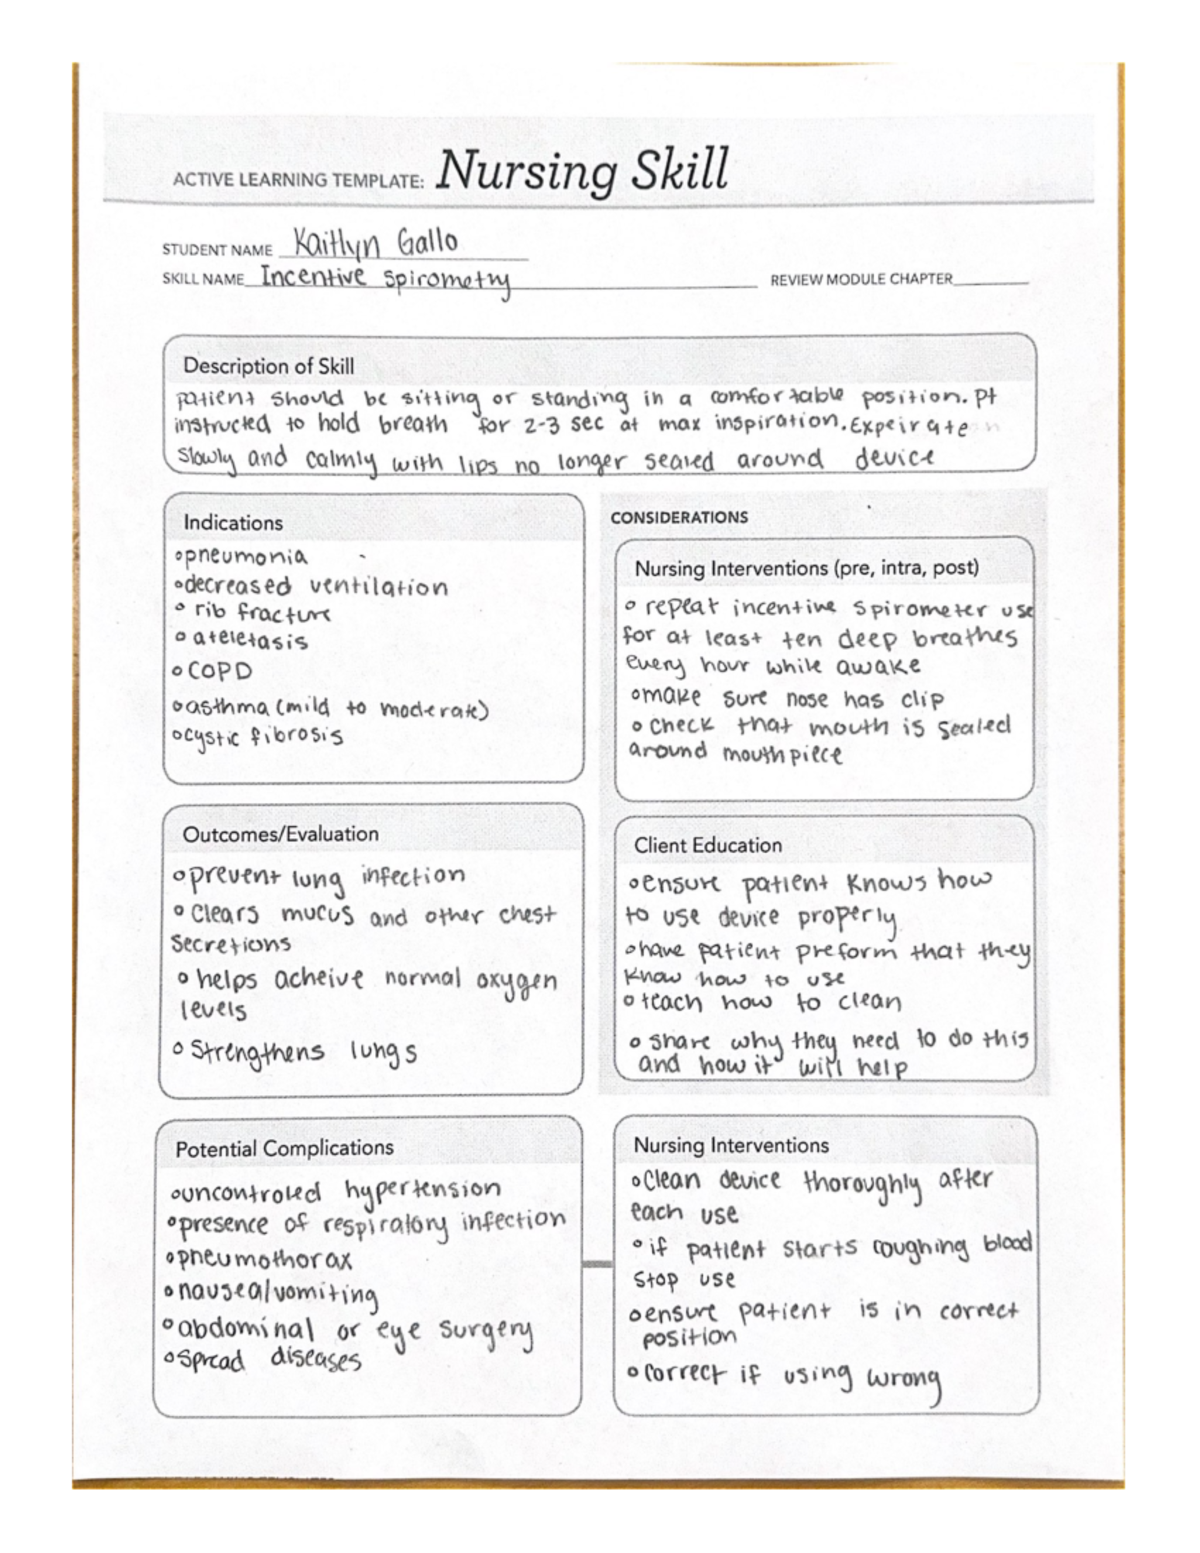 ACTIVE LEARNING TEMPLATE: Nursing Skill
STUDENT NAME Kaitlyn Gallo
SKILL NAME Incentive spirometry
REVIEW MODULE CHAPTER
Description of Skill
patient should be sitting or standing in a comfortable position. pt
instructed to hold breath for 2-3 sec at max inspiration. Expeirate
slowly and calmly with lips no longer sealed around device
Indications
pneumonia
decreased ventilation
rib fracture
ateletasis
COPD
asthma (mild to moderate)
cystic fibrosis
CONSIDERATIONS
Nursing Interventions (pre, intra, post)
repeat incentive spirometer use
for at least ten deep breathes
every hour while awake
make sure nose has clip
check that mouth is sealed
around mouthpiece
Outcomes/Evaluation
prevent lung infection
clears mucus and other chest
secretions
helps acheive normal oxygen
levels
strengthens lungs
Client Education
ensure patient knows how
to use device properly
have patient preform that they
know how to use
teach how to clean
share why they need to do this
and how it will help
Potential Complications
uncontroled hypertension
presence of respiratory infection
pneumothorax
nausea/vomiting
abdominal or eye surgery
spread diseases
Nursing Interventions
Clean device thoroughly after
each use
if patient starts coughing blood
stop use
ensure patient is in correct
position
correct if using wrong